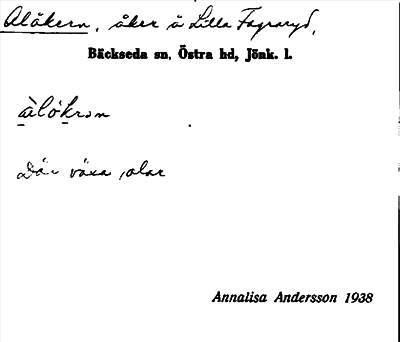 Alåkern, åker å Lilla Fagraryd,
Bäckseda sn, Östra hd, Jönk. l.
àlókrən
Där växa alar
Annalisa Andersson 1938